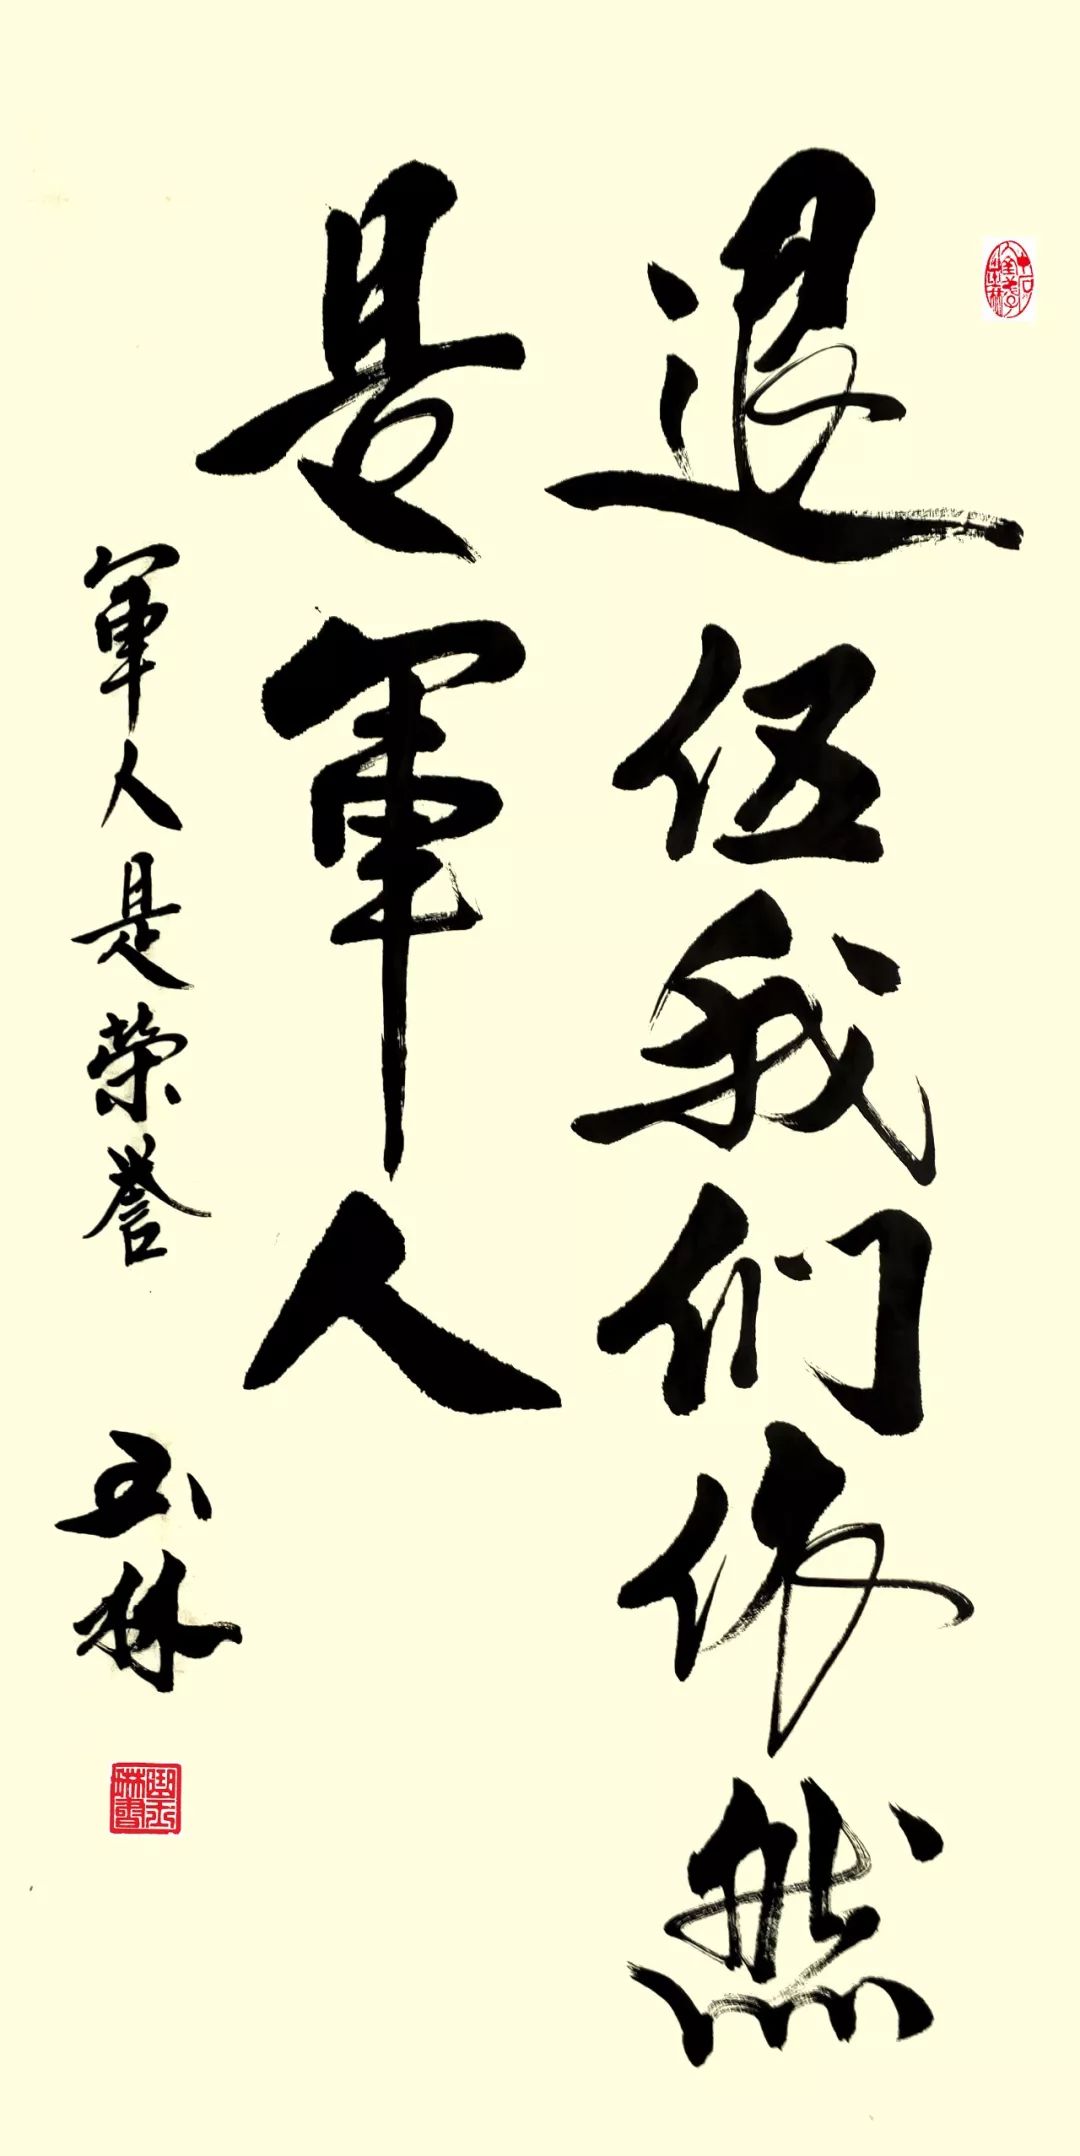 退伍我们依然
是軍人
軍人是荣誉
玉林